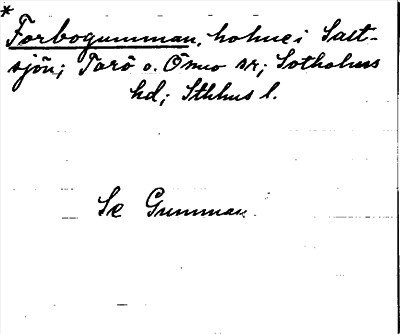 *
Forbogumman, holme i Salt-
sjön; Torö o. Ösmo sn; Sotholms
hd; Sthlms l.
Se Gumman.